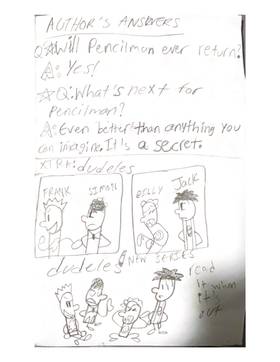 AUTHOR'S ANSWERS
Q☆Will Pencilman ever return?
A: Yes!
☆Q: What's next for
Pencilman?
A: Even better than anything you
can imagine. It's a secret.
XTRA: dudeles
FRANK SIMON BILLY JACK
dudeles NEW SERIES
read
it when
it's
out